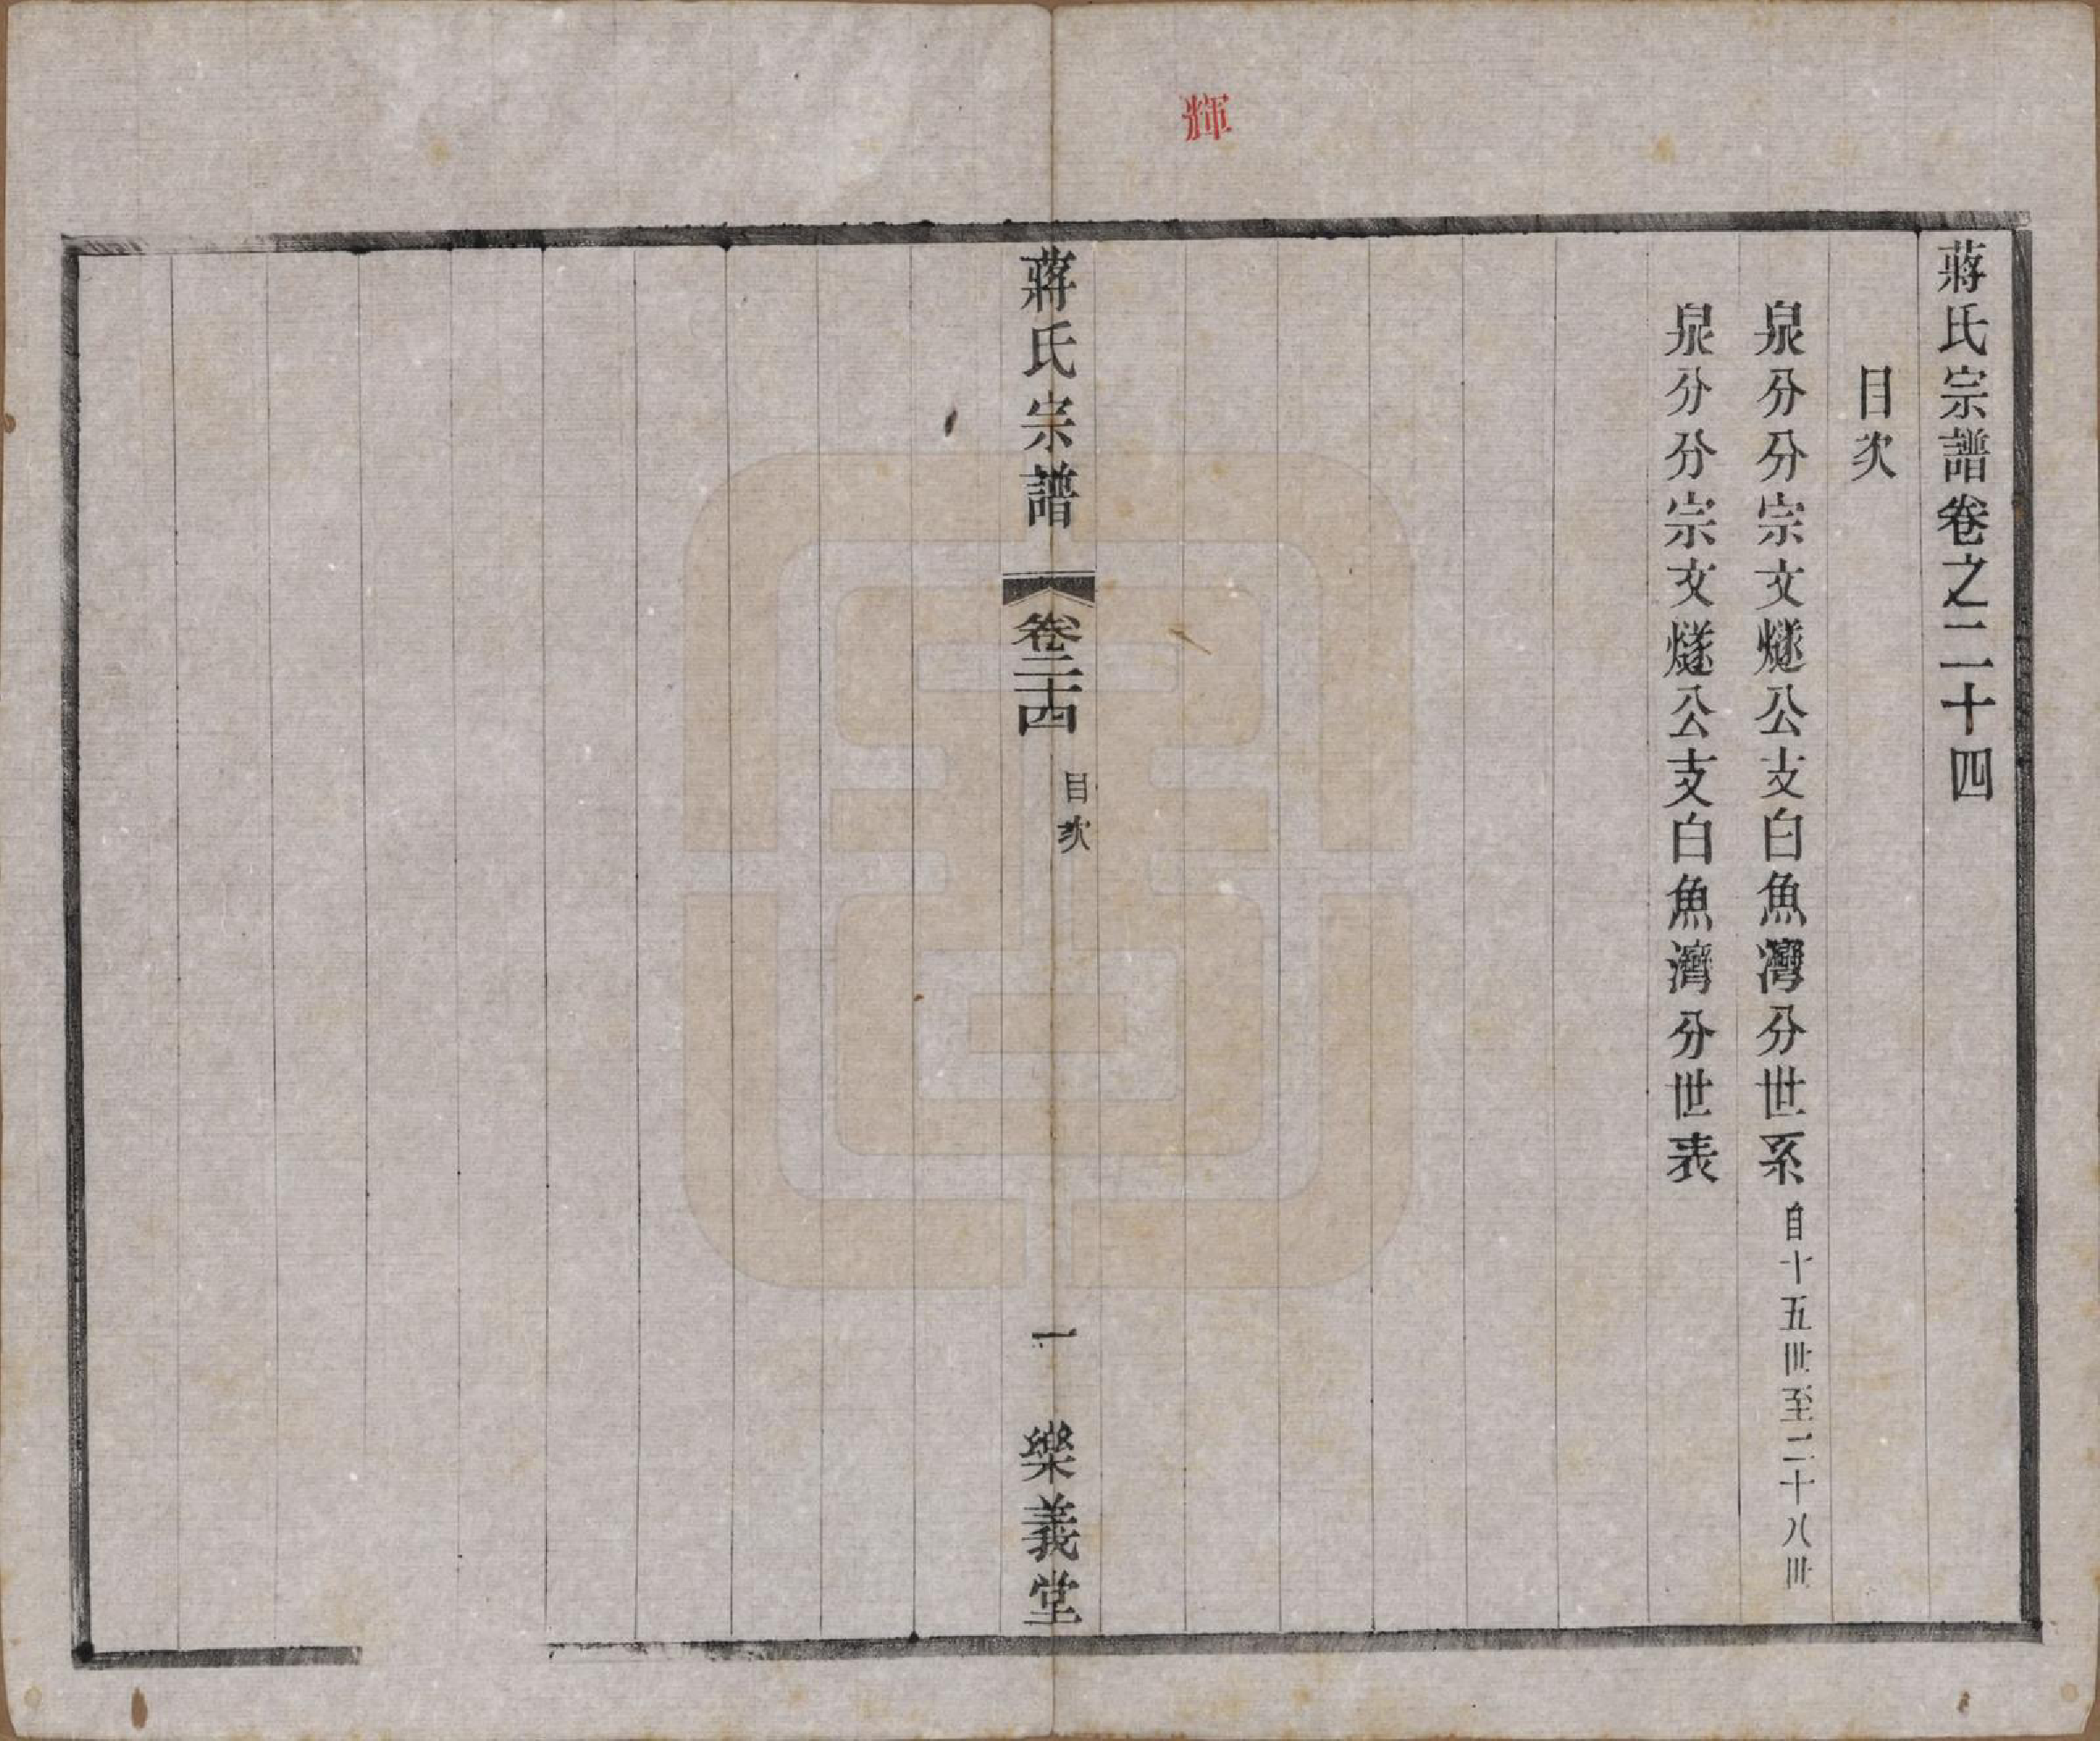 輝
蔣氏宗譜卷之二十四
目次
泉分分宗文燧公支白魚灣分世系 自十五世至二十八世
泉分分宗文燧公支白魚灣分世表
蔣氏宗譜 卷二十四 目次 一 樂義堂